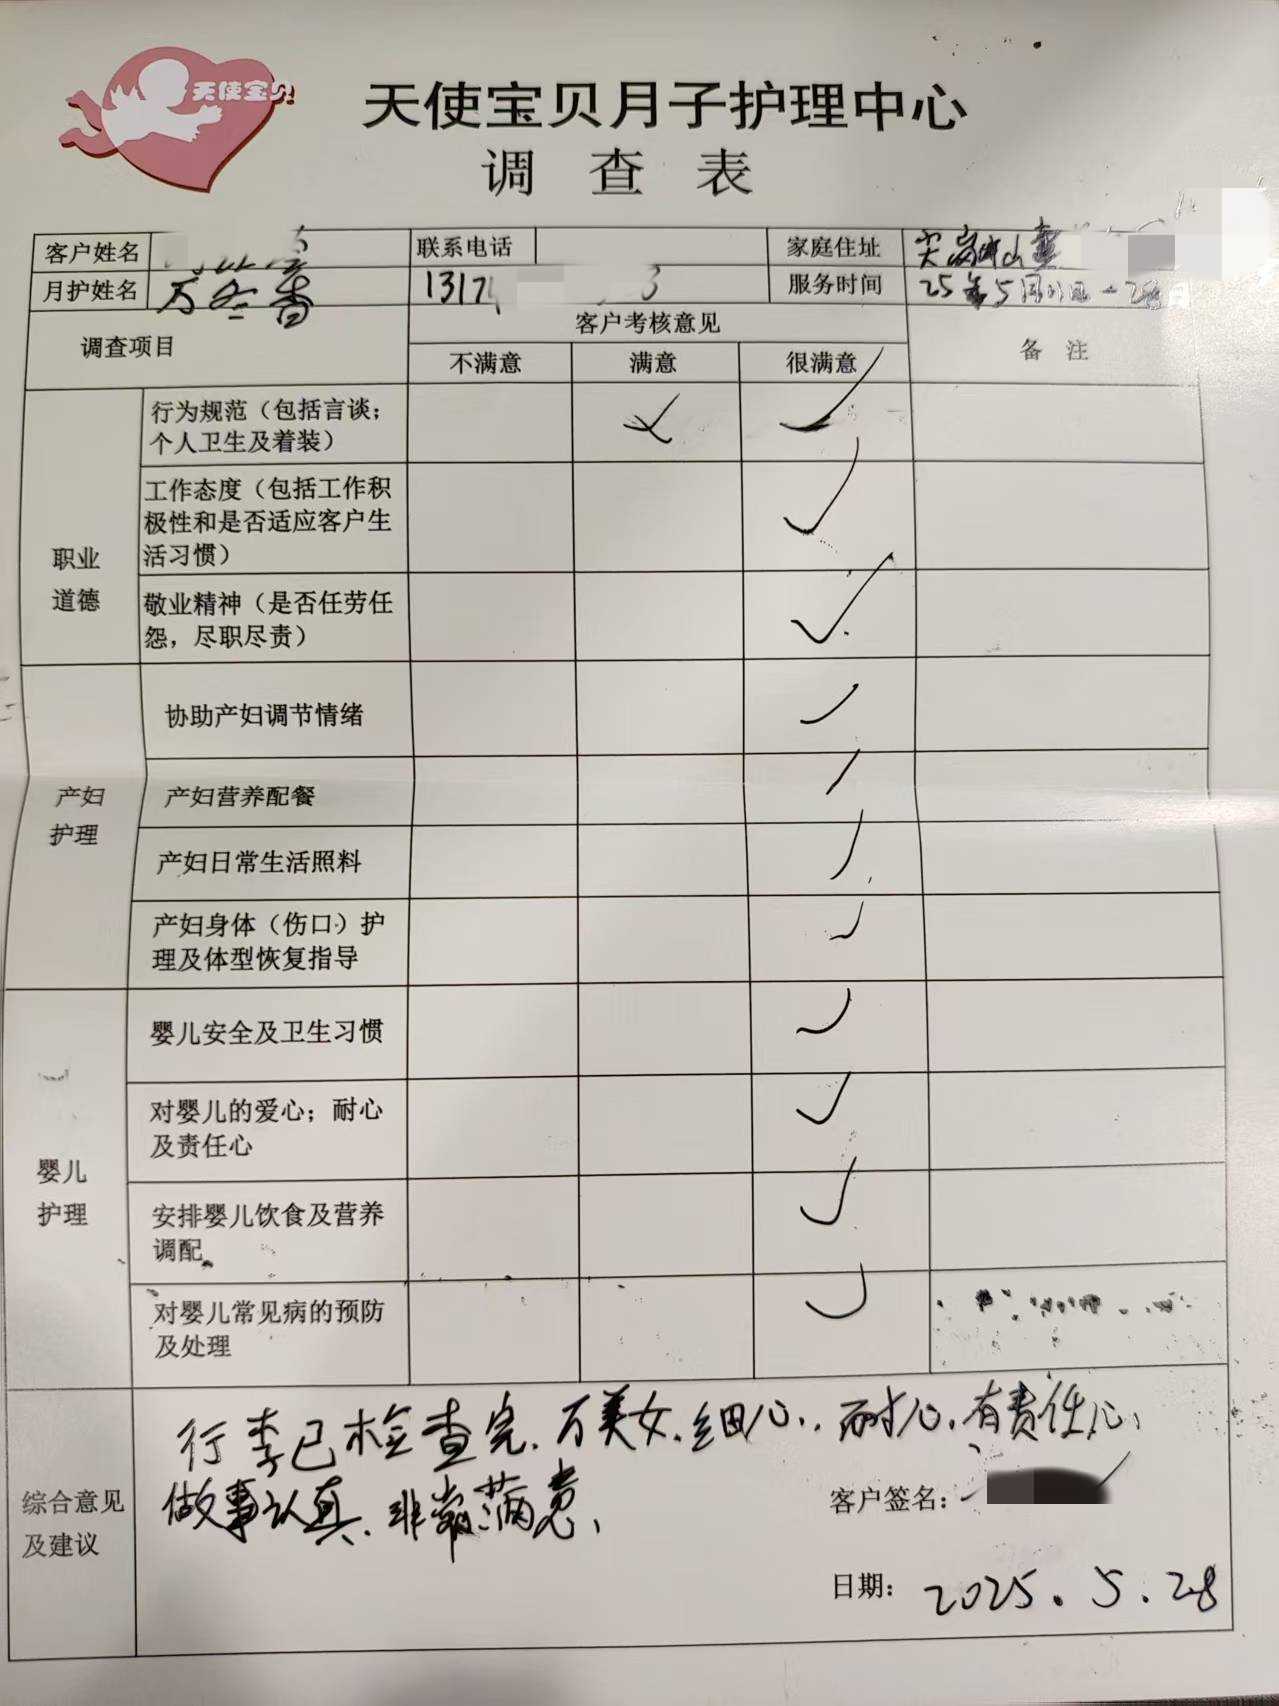 天使宝贝
天使宝贝月子护理中心
调 查 表
客户姓名 联系电话 家庭住址
月护姓名 万冬香 服务时间 25年5月
调查项目 客户考核意见 备 注
不满意 满意 很满意
职业
道德
行为规范（包括言谈；
个人卫生及着装）
工作态度（包括工作积
极性和是否适应客户生
活习惯）
敬业精神（是否任劳任
怨，尽职尽责）
产妇
护理
协助产妇调节情绪
产妇营养配餐
产妇日常生活照料
产妇身体（伤口）护
理及体型恢复指导
婴儿
护理
婴儿安全及卫生习惯
对婴儿的爱心；耐心
及责任心
安排婴儿饮食及营养
调配。
对婴儿常见病的预防
及处理
综合意见
及建议
行李已检查完、万美女、细心、耐心、有责任心、
做事认真、非常满意、
客户签名：
日期： 2025.5.28